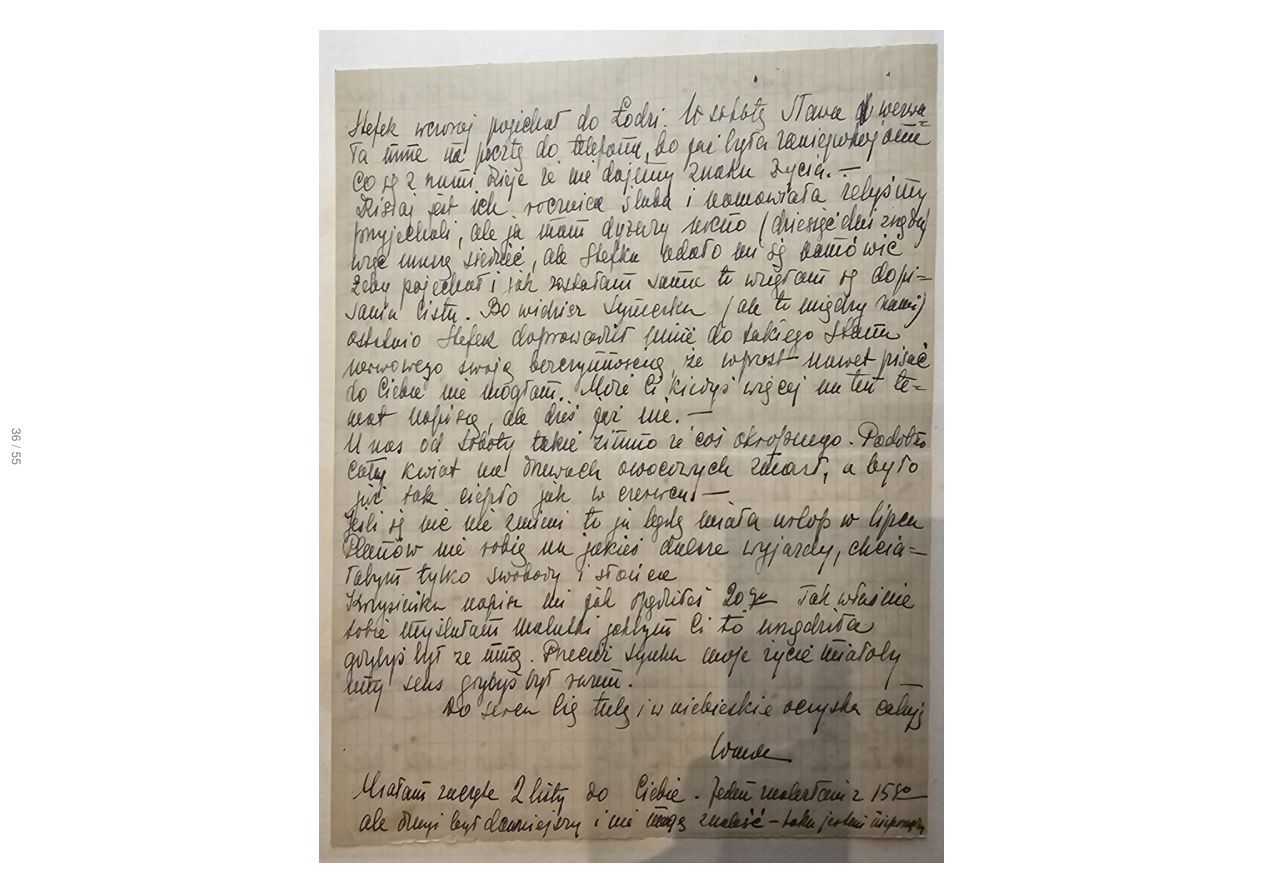 Stefek wczoraj pojechał do Łodzi. W sobotę Sława wezwa=
ła mnie na pocztę do telefonu, bo już była zaniepokojona
co się z nami dzieje że nie dajemy znaku życia. —
Dzisiaj jest ich rocznica ślubu i namawiała żebyśmy
przyjechali, ale ja mam dyżury (dziesięć dni
więc muszę siedzieć, ale Stefka udało mi się namówić
żeby pojechał i jak zostałam sama to wzięłam się do pi=
sania listu. Bo widzisz syneczku (ale to między nami)
ostatnio Stefek doprowadził mnie do takiego stanu
nerwowego swoją bezczynnością, że wprost nawet pisać
do Ciebie nie mogłam. Może Ci kiedyś więcej na ten te=
mat napiszę, ale dziś już nie. —
U nas od soboty takie zimno że coś okropnego. Podobno
cały kwiat na drzewach owocowych zmarzł, a było
już tak ciepło jak w czerwcu. —
Jeśli się nic nie zmieni to ja będę miała urlop w lipcu
Planów nie robię na jakieś dalsze wyjazdy, chcia=
łabym tylko swobody i słońca
Krzysieńku napisz mi jak spędziłeś 20go Tak właśnie
sobie myślałam malutki jakbym Ci to urządziła
gdybyś był ze mną. Przecież synku moje życie miałoby
inny sens gdybyś był razem. —
Do serca Cię tulę i w niebieskie oczyska całuję
Wanda
Miałam zaczęte 2 listy do Ciebie. Jeden znalazłam z 15go
ale drugi był dawniejszy i nie mogę znaleźć – taka jestem